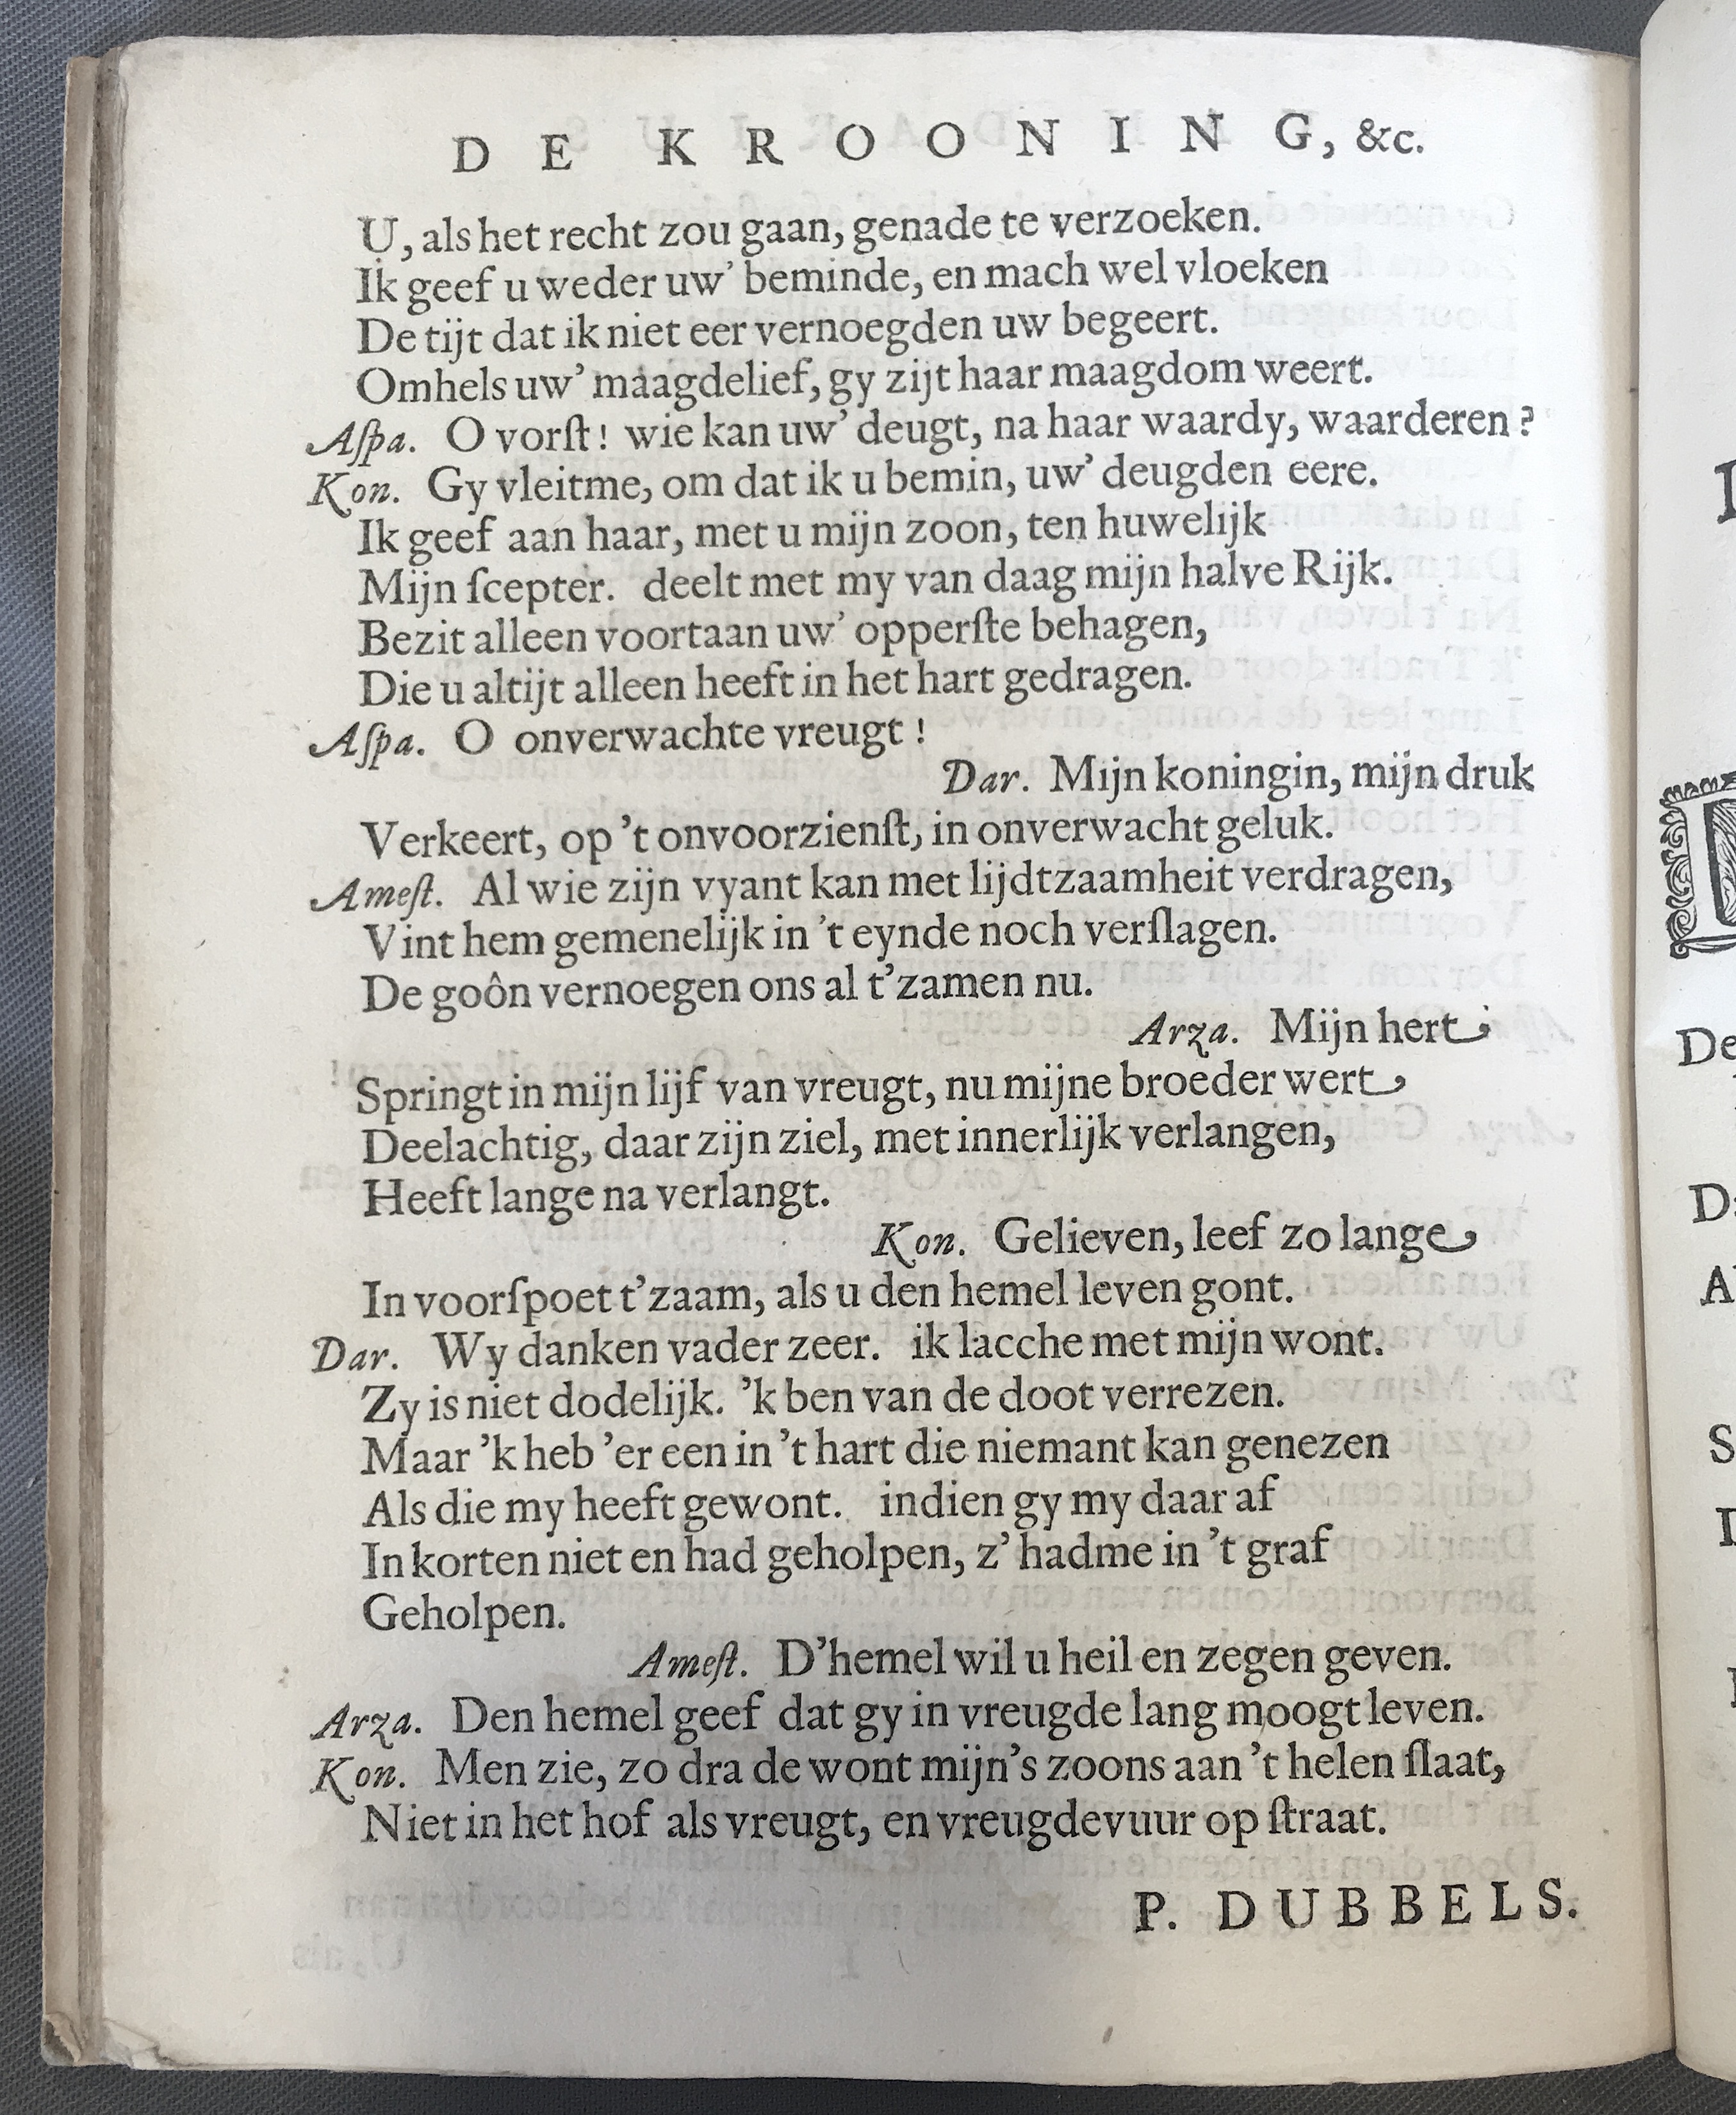 DE KROONING, &c.
U, als het recht zou gaan, genade te verzoeken.
Ik geef u weder uw' beminde, en mach wel vloeken
De tijt dat ik niet eer vernoegden uw begeert.
Omhels uw' maagdelief, gy zijt haar maagdom weert.
Aſpa. O vorſt! wie kan uw' deugt, na haar waardy, waarderen?
Kon. Gy vleitme, om dat ik u bemin, uw' deugden eere.
Ik geef aan haar, met u mijn zoon, ten huwelijk
Mijn ſcepter. deelt met my van daag mijn halve Rijk.
Bezit alleen voortaan uw' opperſte behagen,
Die u altijt alleen heeft in het hart gedragen.
Aſpa. O onverwachte vreugt!
Dar. Mijn koningin, mijn druk
Verkeert, op 't onvoorzienſt, in onverwacht geluk.
Ameſt. Al wie zijn vyant kan met lijdtzaamheit verdragen,
Vint hem gemenelijk in 't eynde noch verſlagen.
De goôn vernoegen ons al t'zamen nu.
Arza. Mijn hert
Springt in mijn lijf van vreugt, nu mijne broeder wert
Deelachtig, daar zijn ziel, met innerlijk verlangen,
Heeft lange na verlangt.
Kon. Gelieven, leef zo lange
In voorſpoet t'zaam, als u den hemel leven gont.
Dar. Wy danken vader zeer. ik lacche met mijn wont.
Zy is niet dodelijk. 'k ben van de doot verrezen.
Maar 'k heb 'er een in 't hart die niemant kan genezen
Als die my heeft gewont. indien gy my daar af
In korten niet en had geholpen, z' hadme in 't graf
Geholpen.
Ameſt. D'hemel wil u heil en zegen geven.
Arza. Den hemel geef dat gy in vreugde lang moogt leven.
Kon. Men zie, zo dra de wont mijn's zoons aan 't helen ſlaat,
Niet in het hof als vreugt, en vreugdevuur op ſtraat.
P. DUBBELS.